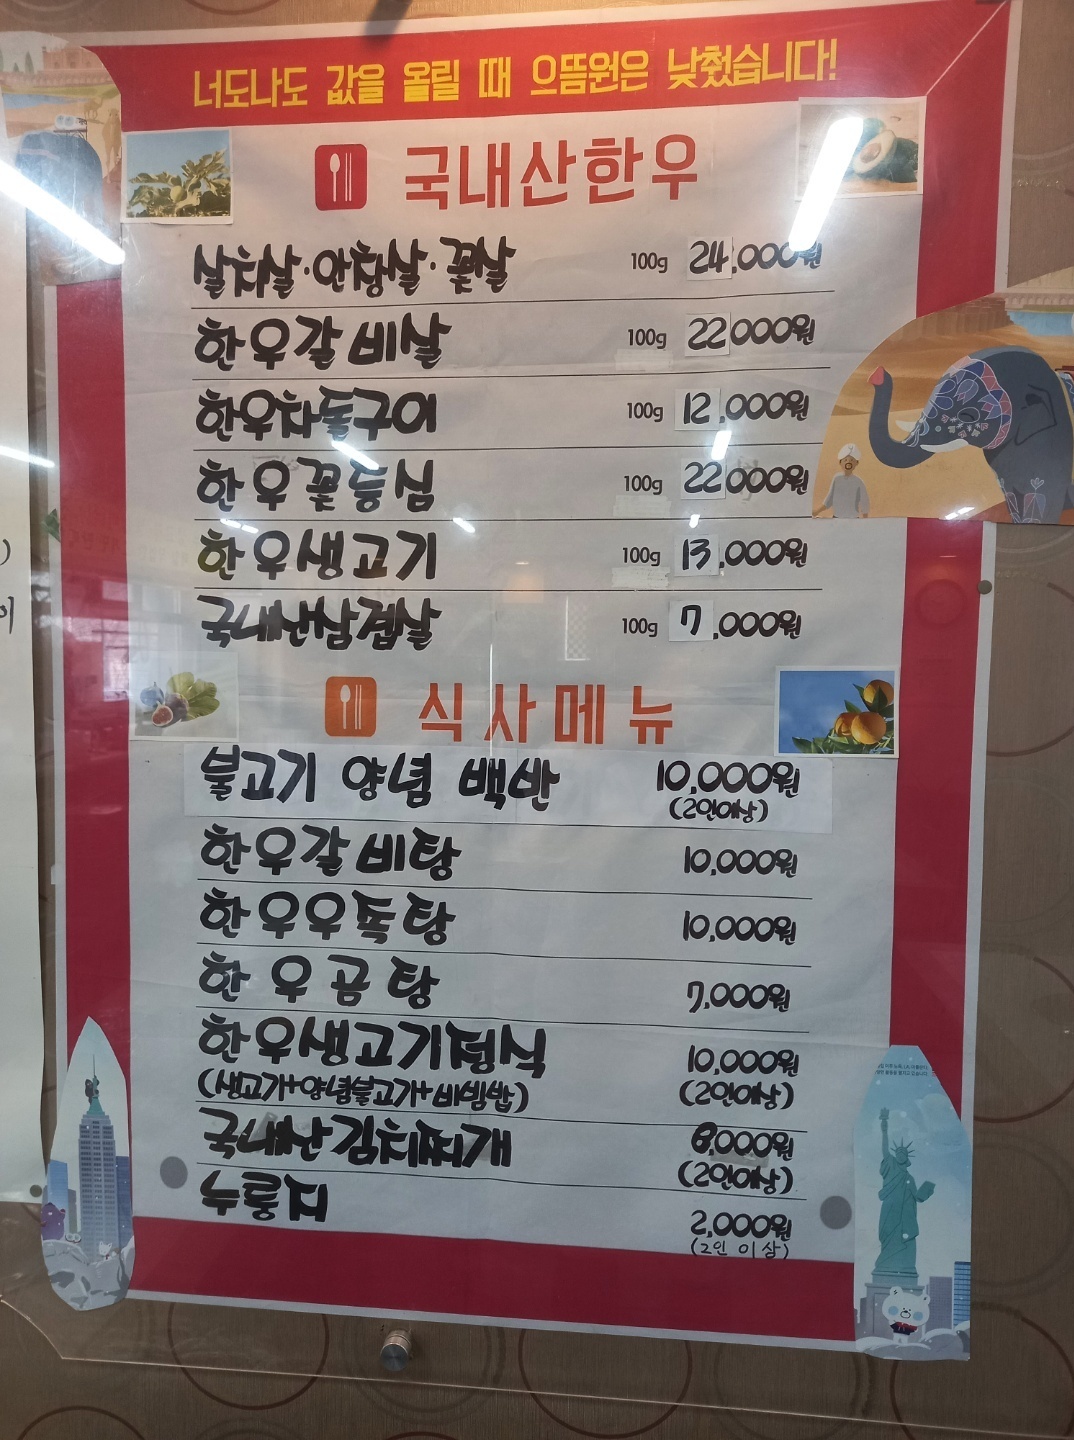 너도나도 값을 올릴 때 으뜸원은 낮췄습니다!
국내산한우
살치살·안창살·꽃살 100g 24,000원
한우갈비살 100g 22000원
한우차돌구이 100g 12,000원
한우꽃등심 100g 22000원
한우생고기 100g 13,000원
국내산삼겹살 100g 7,000원
식사메뉴
불고기 양념 백반 10,000원
(2인이상)
한우갈비탕 10,000원
한우우족탕 10,000원
한우곰탕 7,000원
한우생고기정식 10,000원
(생고기+양념불고기+비빔밥) (2인이상)
국내산김치찌개 8,000원
(2인이상)
누룽지 2,000원
(2인 이상)